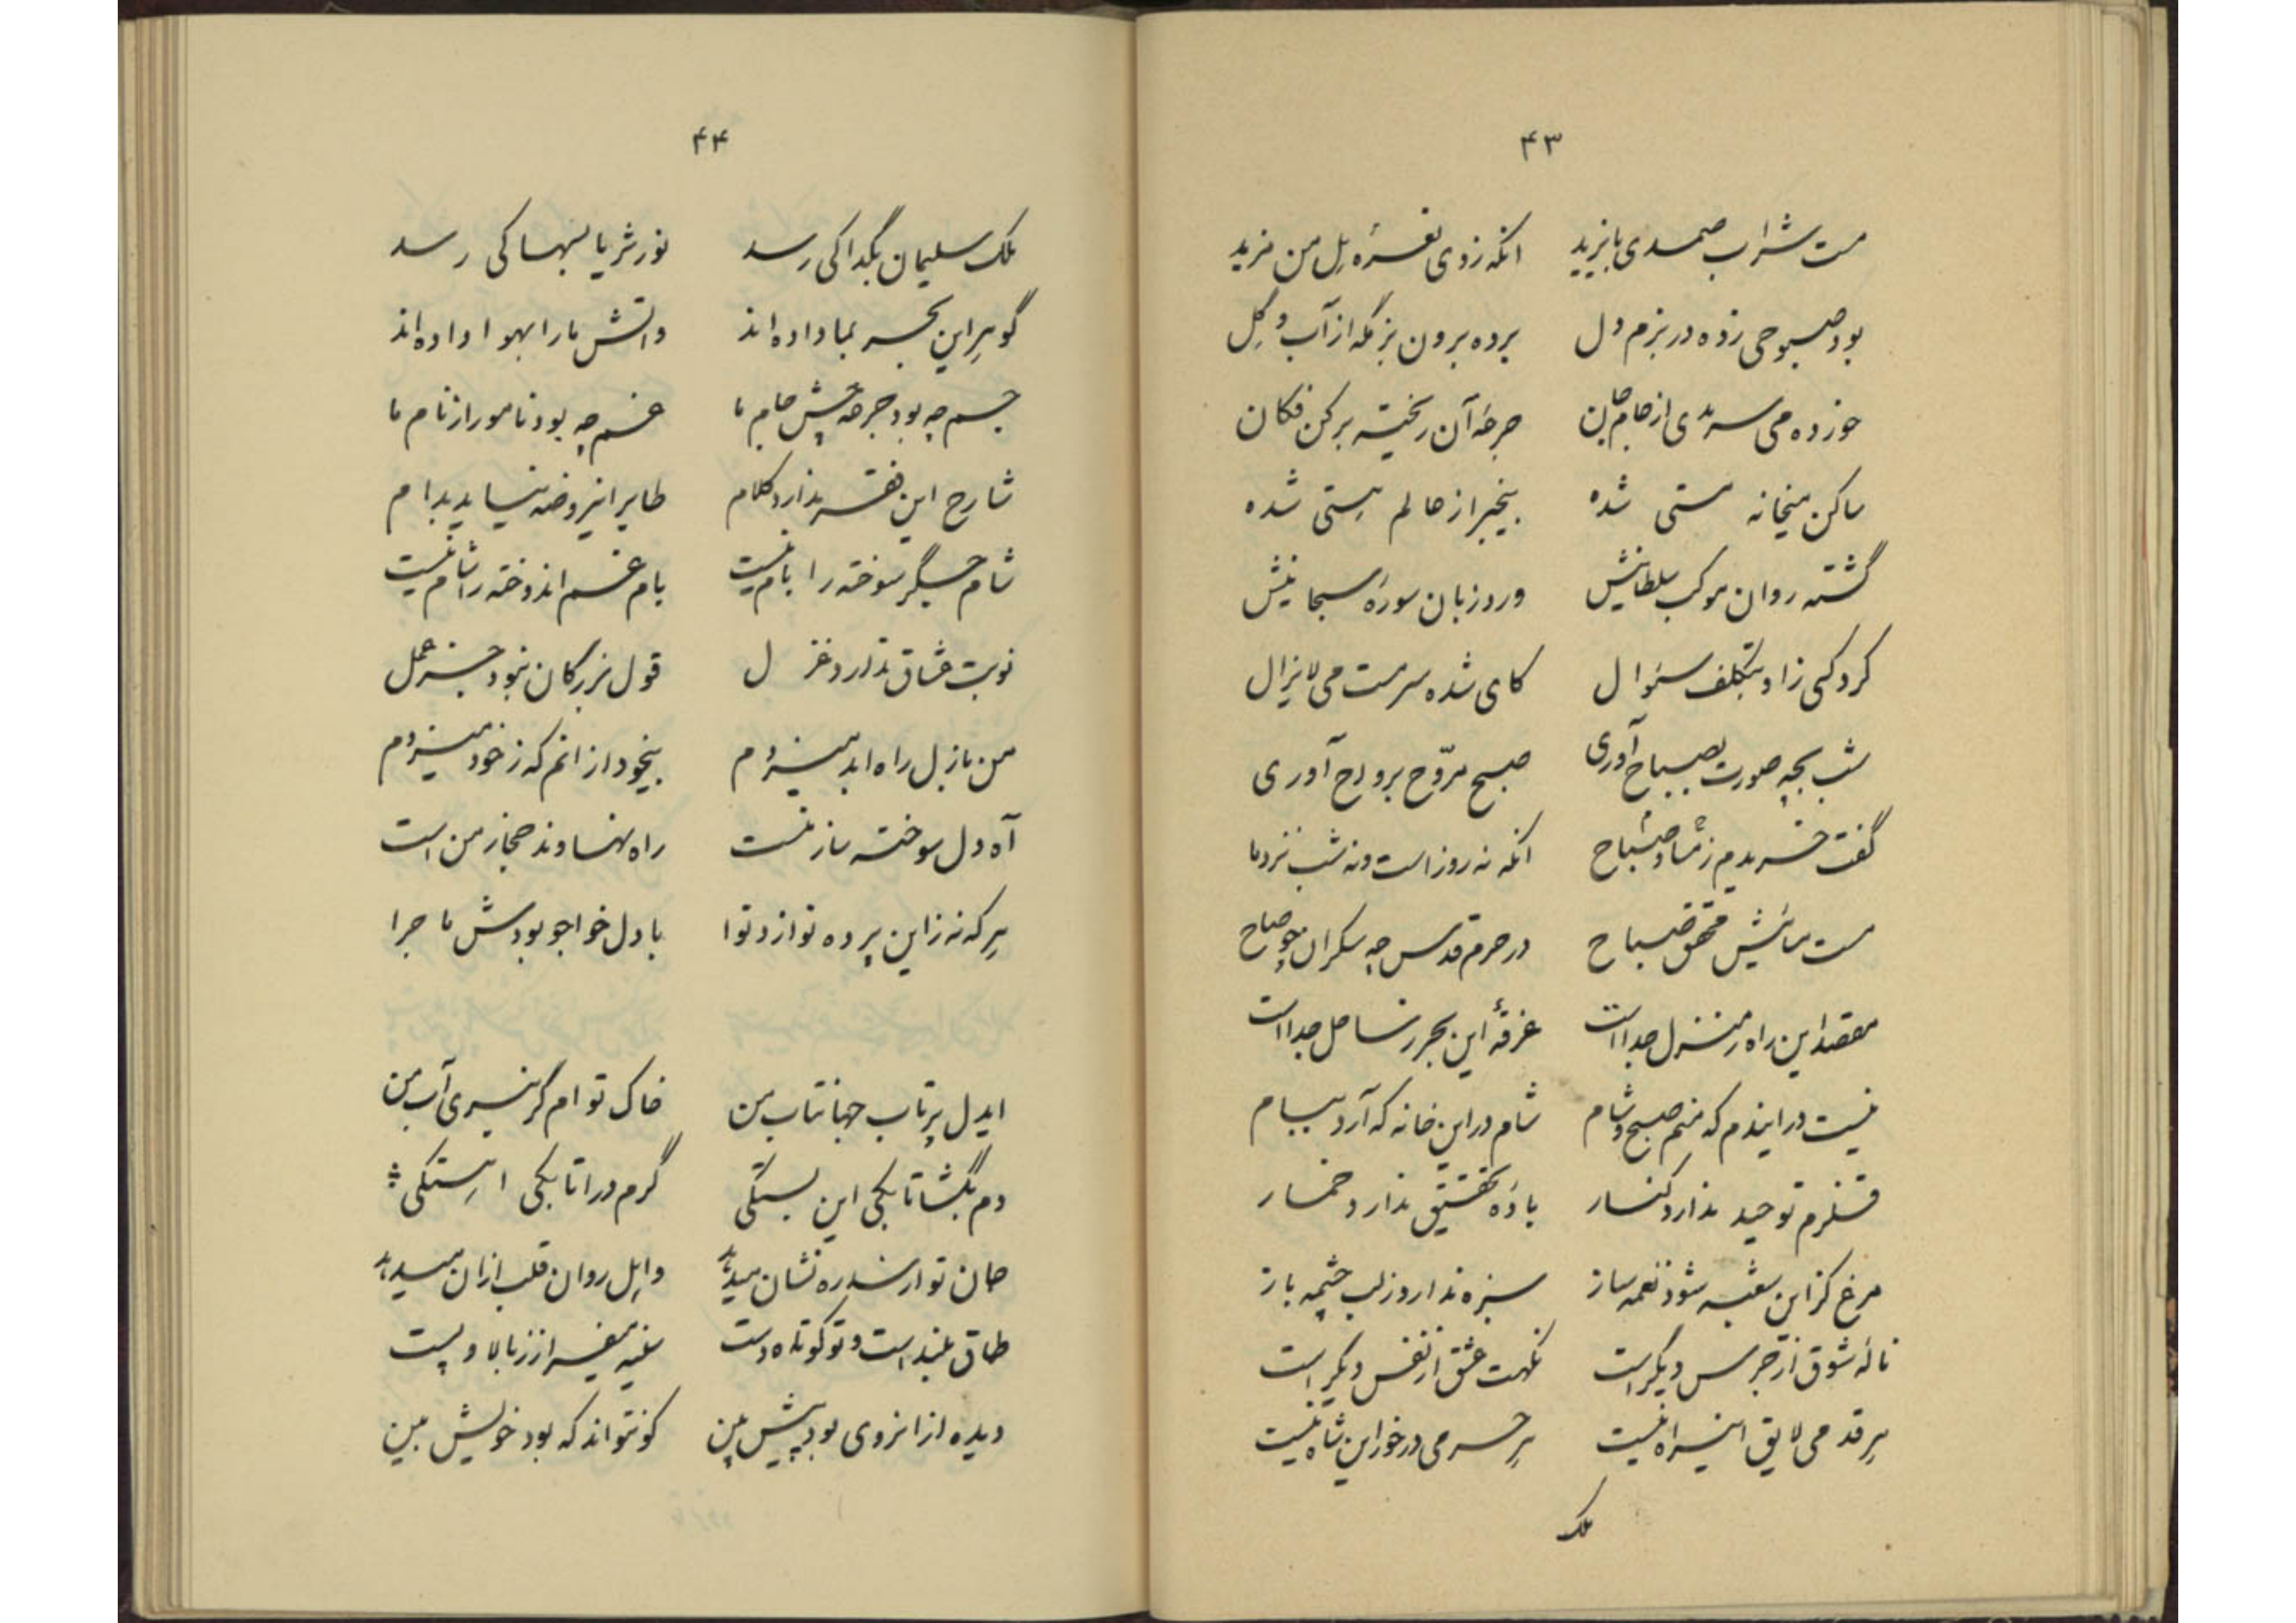 ۴۳
مست شراب صمدی بایزید انکه زدی نعرهٔ هل من مزید
بود صبوحی زده در بزم دل برده برون بزمگه از آب و گل
خورده می سرمدی از جام جان جرعهٔ آن ریخته بر کن فکان
ساکن میخانه مستی شده بیخبر از عالم هستی شده
گشته روان موکب سلطانیش ورد زبان سورهٔ سبحانیش
کرد کسی زاو بتکلف سئوال کای شده سرمست می لایزال
شب بچه صورت بصباح آوری صبح مروّح برواح آوری
گفت خبر مدم ز مسا و صباح انکه نه روز است و نه شب نزد ما
مست صباح در حرم قدس چه سکران چه صاح
مقصد این راه ز منزل جدا است غرقهٔ این بحر ز ساحل جدا است
نیست در ایندم که منم صبح و شام شام در این خانه که آرد پیام
قلزم توحید ندارد کنار بادهٔ تحقیق ندارد خمار
مرغ کز این شعبه شود نغمه ساز سبزه نداند ز لب چشمه باز
نالهٔ شوق از جرس دیگر است نکهت عشق از نفس دیگر است
هر قدمی لایق این راه نیست هر حرمی درخور این شاه نیست
ملک
۴۴
ملک سلیمان بگدا کی رسد نور ثریا بسها کی رسد
گوهر این بحر بما داده‌اند واتش ما را بهوا داده‌اند
جسم چه بود جرعه چش جام ما غم چه بود نامور از نام ما
شارح این فقر ندارد کلام طایر این روضه نیاید بدام
شام جگر سوخته را بام نیست بام غم اندوخته را شام نیست
نوبت عشاق ندارد غزل قول بزرگان نبود جز عمل
من ز ازل راه ابد میزدم بیخود از انم که ز خود میزدم
آه دل سوخته ساز منست راه نهاوند حجاز من است
هر که نه زاین پرده نوازد نوا با دل خواجو بودش ماجرا
ایدل پرتاب جهانتاب من خاک توام گر نبری آب من
دم بگشا تا بکی این بستگی گرم درا تا بکی اهستگی
جان تو از سدره نشان میدهد وایل روان قلب از ان میدهد
طاق بلند است و تو کوتاه دست بالا و پست
دیده از انروی بود پیش بین کو نتواند که بود خویش بین